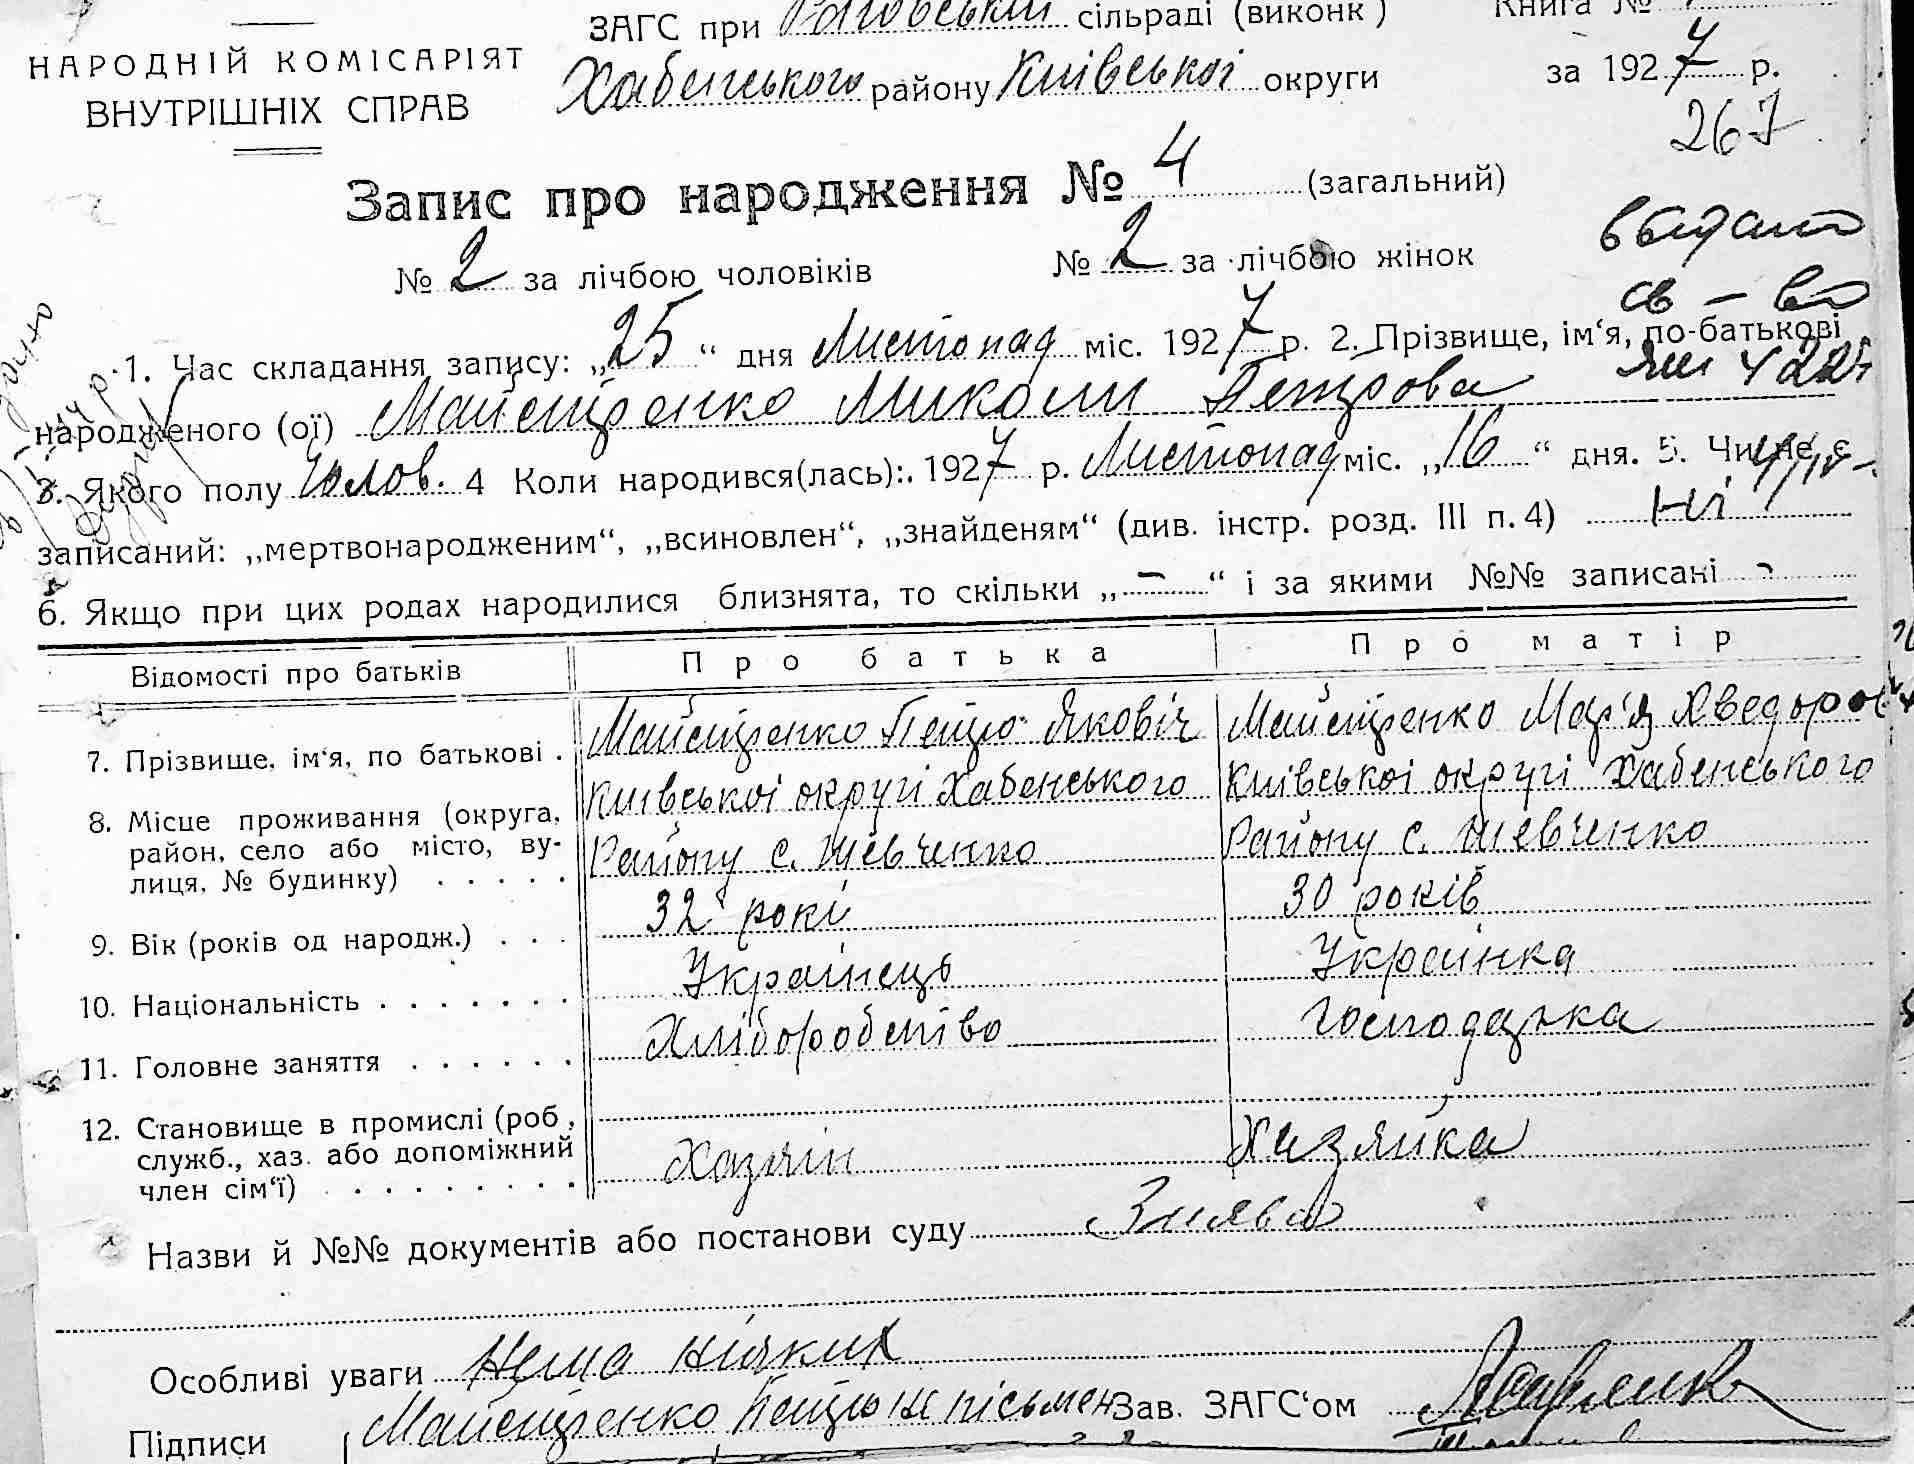 НАРОДНІЙ КОМІСАРІЯТ
ВНУТРІШНІХ СПРАВ
ЗАГС при сільраді (виконк )
Хабенського району Київської округи
Книга №
за 1927 р.
267
Запис про народження № 4 (загальний)
№ 2 за лічбою чоловіків № 2 за лічбою жінок
1. Час складання запису: „25 “ дня Листопад міс. 1927 р. 2. Прізвище, ім‘я, по-батькові
народженого (ої) Майстренко Миколи Петрова
3. Якого полу чолов. 4 Коли народився(лась):. 1927 р. Листопад міс. „16 “ дня. 5. Чи не є
записаний: „мертвонародженим“, „всиновлен“, „знайденям“ (див. інстр. розд. III п. 4) Ні
6. Якщо при цих родах народилися близнята, то скільки „ — “ і за якими №№ записані -
Відомості про батьків Про батька Про матір
7. Прізвище, ім‘я, по батькові . Майстренко Петро Якович Майстренко Мар‘я
8. Місце проживання (округа, район, село або місто, ву-лиця, № будинку) . . . . . Київської округі Хабенського Київської округі Хабенського
Району с. Шевченко Району с. Шевченко
9. Вік (років од народж.) . . . 32 рокі 30 років
10. Національність . . . . . . . Українець Українка
11. Головне заняття . . . . . . Хліборобство Господарка
12. Становище в промислі (роб., служб., хаз. або допоміжний член сім‘ї) . . . . . . . . . Хазяін Хазяйка
Назви й №№ документів або постанови суду Заява
Особливі уваги Нема ніяких
Підписи Майстренко Петро не письмен Зав. ЗАГС‘ом